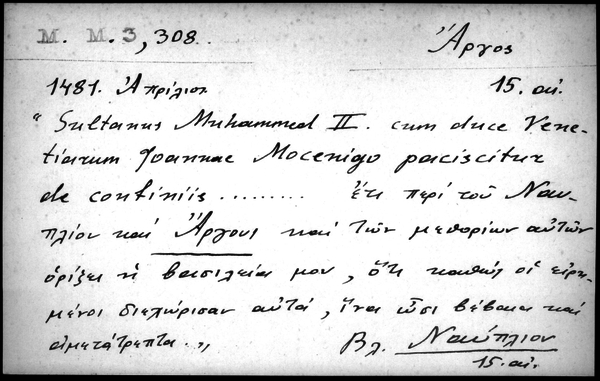 M. M. 3, 308.
Ἄργος
1481. Ἀπρίλιον
15. αἰ.
"Sultanus Muhammed II. cum duce Vene-
tiarum Joannae Mocenigo paciscitur
de continiis ......... ἔτι περί τοῦ Ναυ-
πλίου καί Ἄργους καί τῶν μεθορίων αὐτῶν
ὁρίζει ἡ βασιλεία μου, ὅτι καθώς οἱ εἰρη-
μένοι διεχώρισαν αὐτά, ἵνα ὦσι βέβαια καί
ἀμετάτρεπτα."
Βλ. Ναύπλιον
15. αἰ.